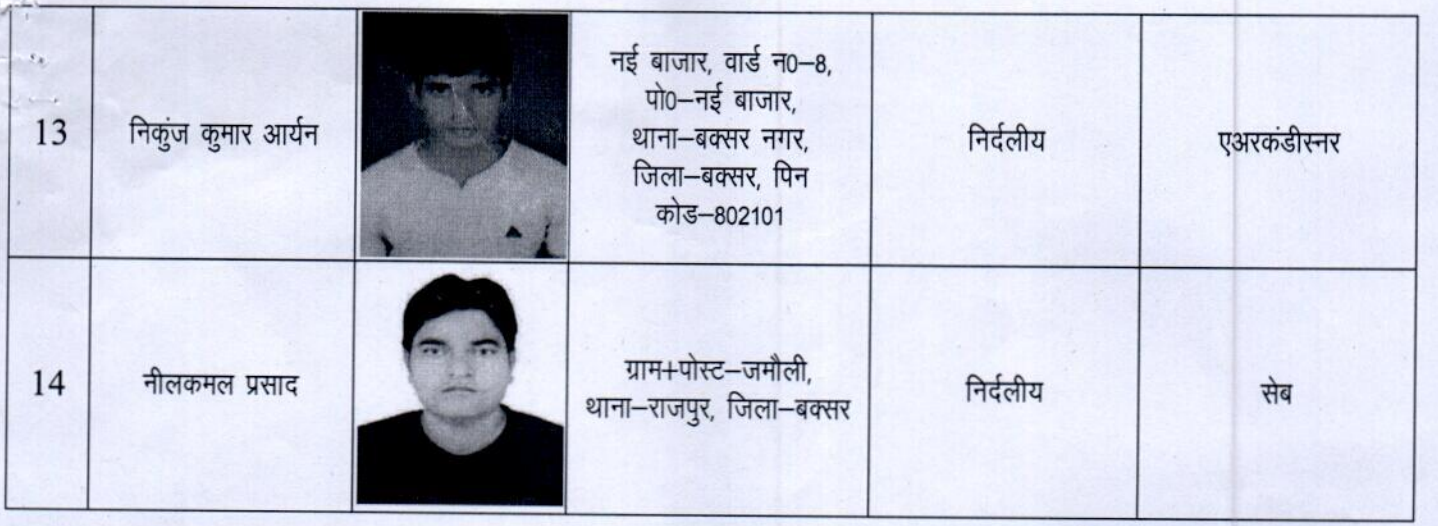 13
निकुंज कुमार आर्यन
नई बाजार, वार्ड न0–8,
पो0–नई बाजार,
थाना–बक्सर नगर,
जिला–बक्सर, पिन
कोड–802101
निर्दलीय
एअरकंडीस्नर
14
नीलकमल प्रसाद
ग्राम+पोस्ट–जमौली,
थाना–राजपुर, जिला–बक्सर
निर्दलीय
सेब